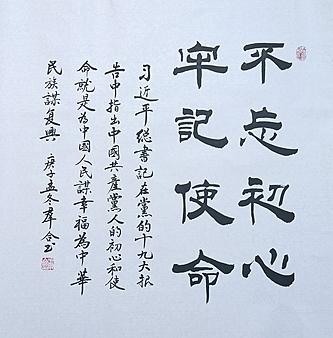 不忘初心
牢記使命
习近平總書記在黨的十九大报
告中指出中國共產黨人的初心和使
命就是为中國人民謀幸福为中華
民族謀复興 庚子孟冬群合书